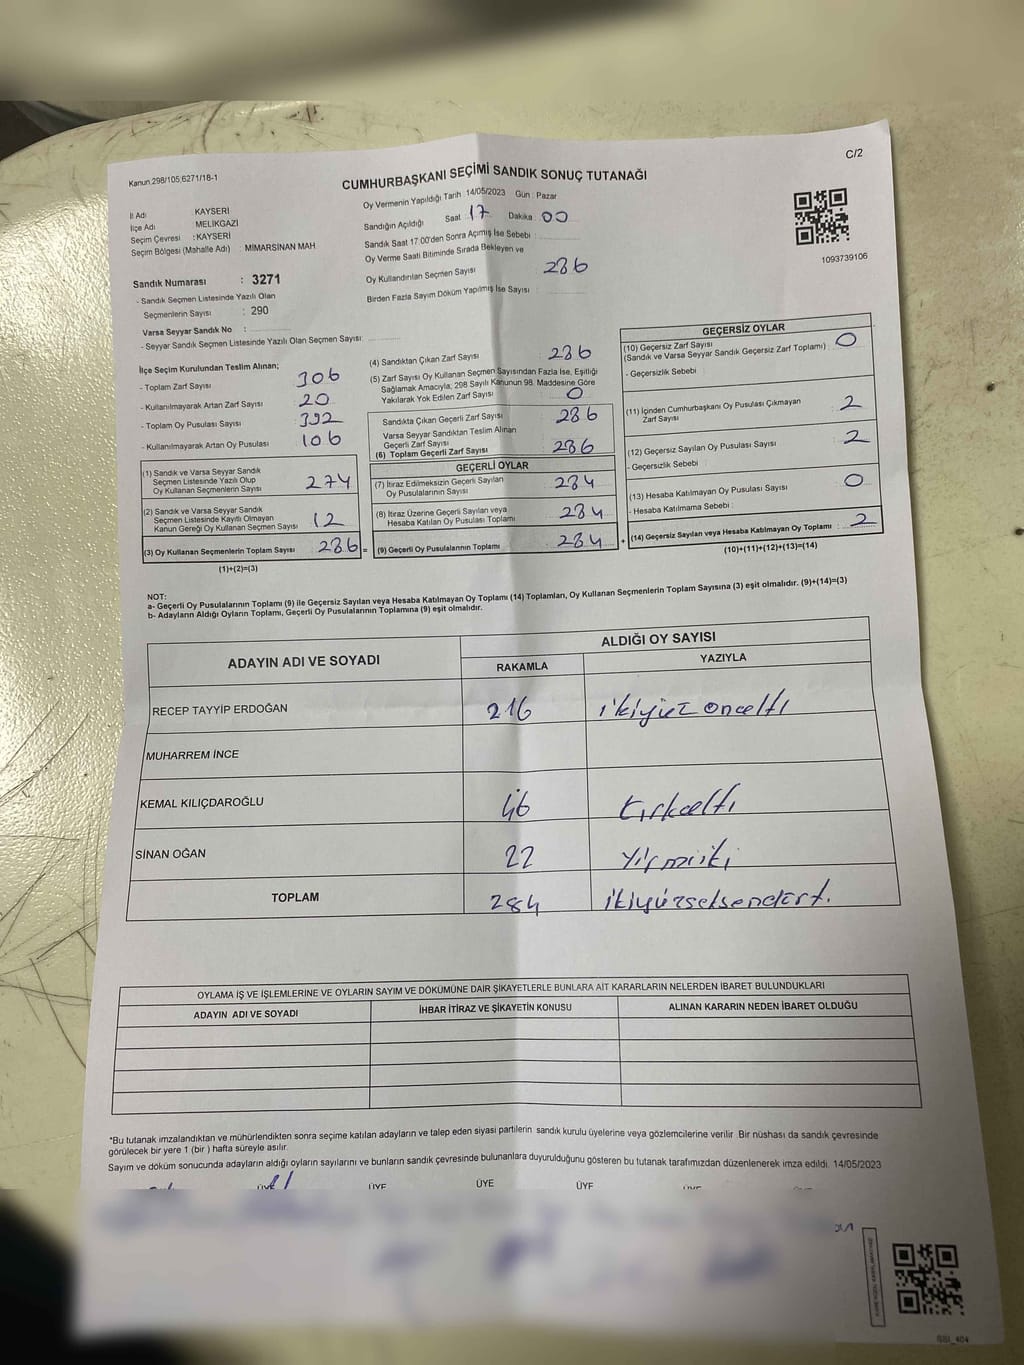 C/2
Kanun.298/105,6271/18-1
CUMHURBAŞKANI SEÇİMİ SANDIK SONUÇ TUTANAĞI
Oy Vermenin Yapıldığı Tarih :14/05/2023 Gün : Pazar
Sandığın Açıldığı Saat : 17 Dakika : 00
Sandık Saat 17.00'den Sonra Açımış İse Sebebi :
Oy Verme Saati Bitiminde Sırada Bekleyen ve
Oy Kullandırılan Seçmen Sayısı : 286
Birden Fazla Sayım Döküm Yapılmış İse Sayısı :
İl Adı : KAYSERİ
İlçe Adı : MELİKGAZİ
Seçim Çevresi : KAYSERİ
Seçim Bölgesi (Mahalle Adı) : MİMARSİNAN MAH
Sandık Numarası : 3271
- Sandık Seçmen Listesinde Yazılı Olan
Seçmenlerin Sayısı : 290
Varsa Seyyar Sandık No :
- Seyyar Sandık Seçmen Listesinde Yazılı Olan Seçmen Sayısı:
1093739106
İlçe Seçim Kurulundan Teslim Alınan;
- Toplam Zarf Sayısı : 306
- Kullanılmayarak Artan Zarf Sayısı : 20
- Toplam Oy Pusulası Sayısı : 392
- Kullanılmayarak Artan Oy Pusulası : 106
(1) Sandık ve Varsa Seyyar Sandık
Seçmen Listesinde Yazılı Olup
Oy Kullanan Seçmenlerin Sayısı : 274
(2) Sandık ve Varsa Seyyar Sandık
Seçmen Listesinde Kayıtlı Olmayan
Kanun Gereği Oy Kullanan Seçmen Sayısı : 12
(3) Oy Kullanan Seçmenlerin Toplam Sayısı : 286 =
(1)+(2)=(3)
(4) Sandıktan Çıkan Zarf Sayısı : 286
(5) Zarf Sayısı Oy Kullanan Seçmen Sayısından Fazla İse, Eşitliği
Sağlamak Amacıyla, 298 Sayılı Kanunun 98. Maddesine Göre
Yakılarak Yok Edilen Zarf Sayısı : 0
Sandıkta Çıkan Geçerli Zarf Sayısı : 286
Varsa Seyyar Sandıktan Teslim Alınan
Geçerli Zarf Sayısı :
(6) Toplam Geçerli Zarf Sayısı : 286
GEÇERLİ OYLAR
(7) İtiraz Edilmeksizin Geçerli Sayılan
Oy Pusulalarının Sayısı : 284
(8) İtiraz Üzerine Geçerli Sayılan veya
Hesaba Katılan Oy Pusulası Toplamı : 284
(9) Geçerli Oy Pusulalarının Toplamı : 284 +
GEÇERSİZ OYLAR
(10) Geçersiz Zarf Sayısı : 0
(Sandık ve Varsa Seyyar Sandık Geçersiz Zarf Toplamı)
- Geçersizlik Sebebi :
(11) İçinden Cumhurbaşkanı Oy Pusulası Çıkmayan
Zarf Sayısı : 2
(12) Geçersiz Sayılan Oy Pusulası Sayısı : 2
- Geçersizlik Sebebi :
(13) Hesaba Katılmayan Oy Pusulası Sayısı : 0
- Hesaba Katılmama Sebebi :
(14) Geçersiz Sayılan veya Hesaba Katılmayan Oy Toplamı : 2
(10)+(11)+(12)+(13)=(14)
NOT:
a- Geçerli Oy Pusulalarının Toplamı (9) ile Geçersiz Sayılan veya Hesaba Katılmayan Oy Toplamı (14) Toplamları, Oy Kullanan Seçmenlerin Toplam Sayısına (3) eşit olmalıdır. (9)+(14)=(3)
b- Adayların Aldığı Oyların Toplamı, Geçerli Oy Pusulalarının Toplamına (9) eşit olmalıdır.
ADAYIN ADI VE SOYADI
ALDIĞI OY SAYISI
RAKAMLA YAZIYLA
RECEP TAYYİP ERDOĞAN 216 ikiyüz onaltı
MUHARREM İNCE
KEMAL KILIÇDAROĞLU 46 Kırkaltı
SİNAN OĞAN 22 Yirmiiki
TOPLAM 284 ikiyüzseksendört.
OYLAMA İŞ VE İŞLEMLERİNE VE OYLARIN SAYIM VE DÖKÜMÜNE DAİR ŞİKAYETLERLE BUNLARA AİT KARARLARIN NELERDEN İBARET BULUNDUKLARI
ADAYIN ADI VE SOYADI İHBAR İTİRAZ VE ŞİKAYETİN KONUSU ALINAN KARARIN NEDEN İBARET OLDUĞU
*Bu tutanak imzalandıktan ve mühürlendikten sonra seçime katılan adayların ve talep eden siyasi partilerin sandık kurulu üyelerine veya gözlemcilerine verilir. Bir nüshası da sandık çevresinde
görülecek bir yere 1 (bir ) hafta süreyle asılır.
Sayım ve döküm sonucunda adayların aldığı oyların sayılarını ve bunların sandık çevresinde bulunanlara duyurulduğunu gösteren bu tutanak tarafımızdan düzenlenerek imza edildi. 14/05/2023
ÜYE ÜYE ÜYE ÜYE